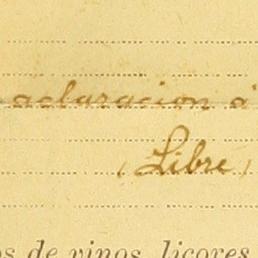 aclaracion a
(Libre)
os de vinos, licores